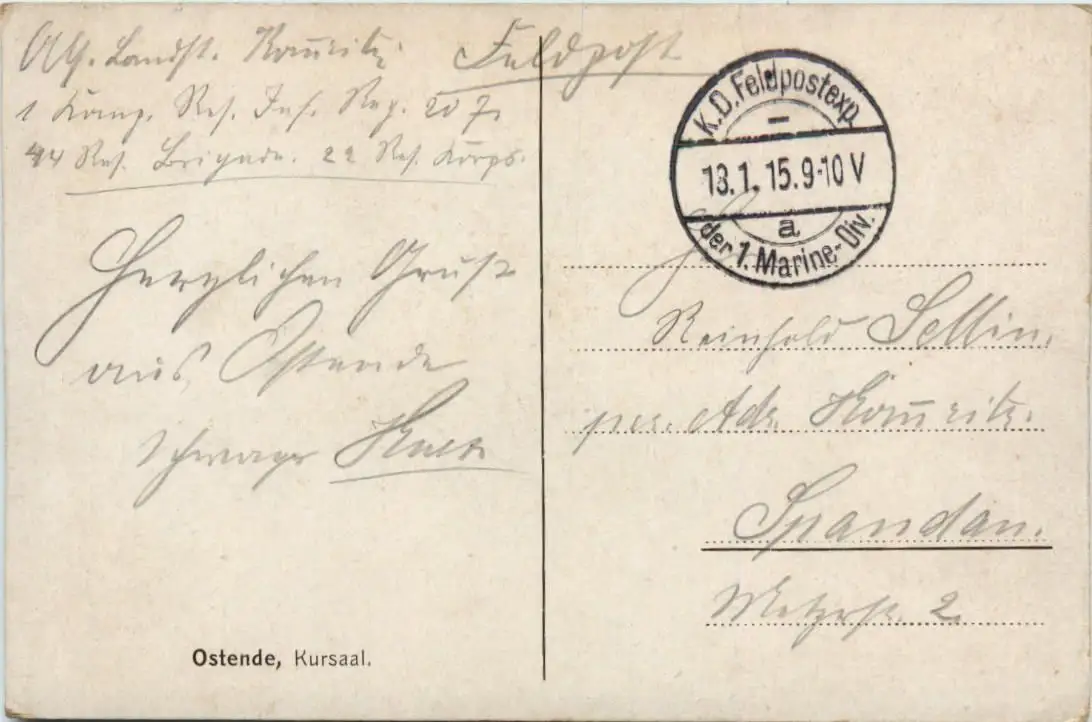 Abs. Landst. Kouritz
Feldpost
1 Komp. Res. Inf. Reg. 207.
44 Res. Brigade. 22 Res. Korps.
Herzlichen Gruß
aus Ostende
Schwager
K.D. Feldpostexp.
13.1.15. 9-10 V
a
der 1. Marine-Div.
Reinhold Sellin.
per. Adr.
Spandau.
Metzerstr. 2.
Ostende, Kursaal.